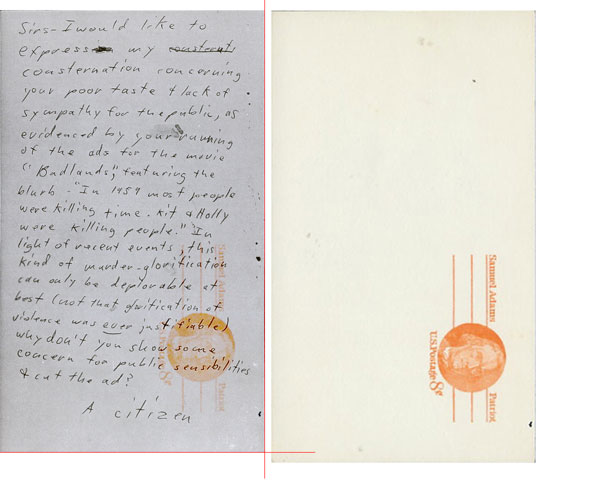 Sirs- I would like to
express my consternati
consternation concerning
your poor taste & lack of
sympathy for the public, as
evidenced by your running
of the ads for the movie
"Badlands," featuring the
blurb - "In 1959 most people
were killing time. Kit & Holly
were killing people." In
light of recent events, this
kind of murder-glorification
can only be deplorable at
best (not that glorification of
violence was ever justifiable)
why don't you show some
concern for public sensibilities
& cut the ad?
A citizen
Samuel Adams
U.S. Postage 8¢
Patriot
Samuel Adams
U.S. Postage 8¢
Patriot